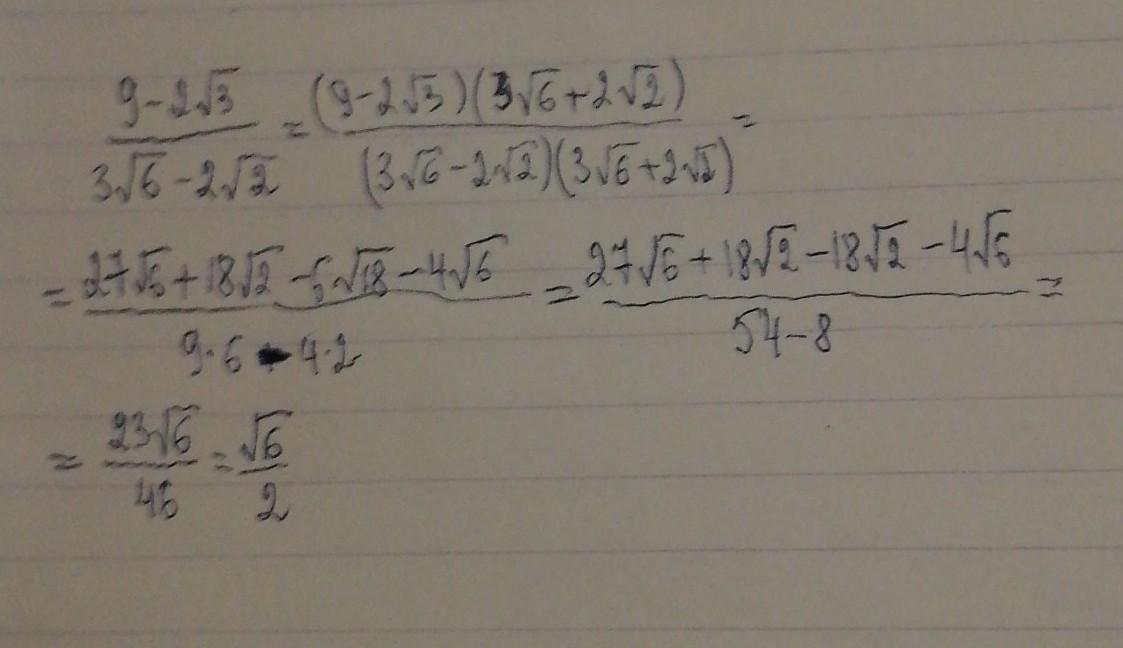 (9-2√3)/(3√6-2√2) = ((9-2√3)(3√6+2√2))/((3√6-2√2)(3√6+2√2)) =
= (27√6+18√2-6√18-4√6)/(9·6-4·2) = (27√6+18√2-18√2-4√6)/(54-8) =
= 23√6/46 = √6/2